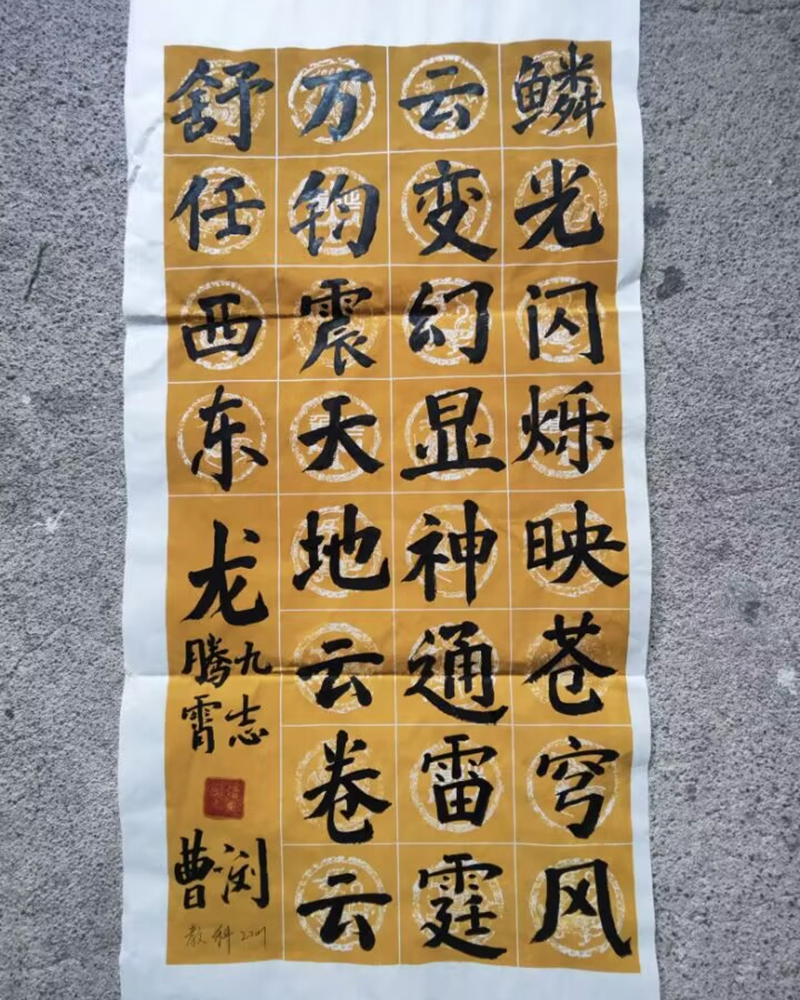 鳞光闪烁映苍穹风
云变幻显神通雷霆
万钧震天地云卷云
舒任西东
龙
九志
腾霄
曹
教科